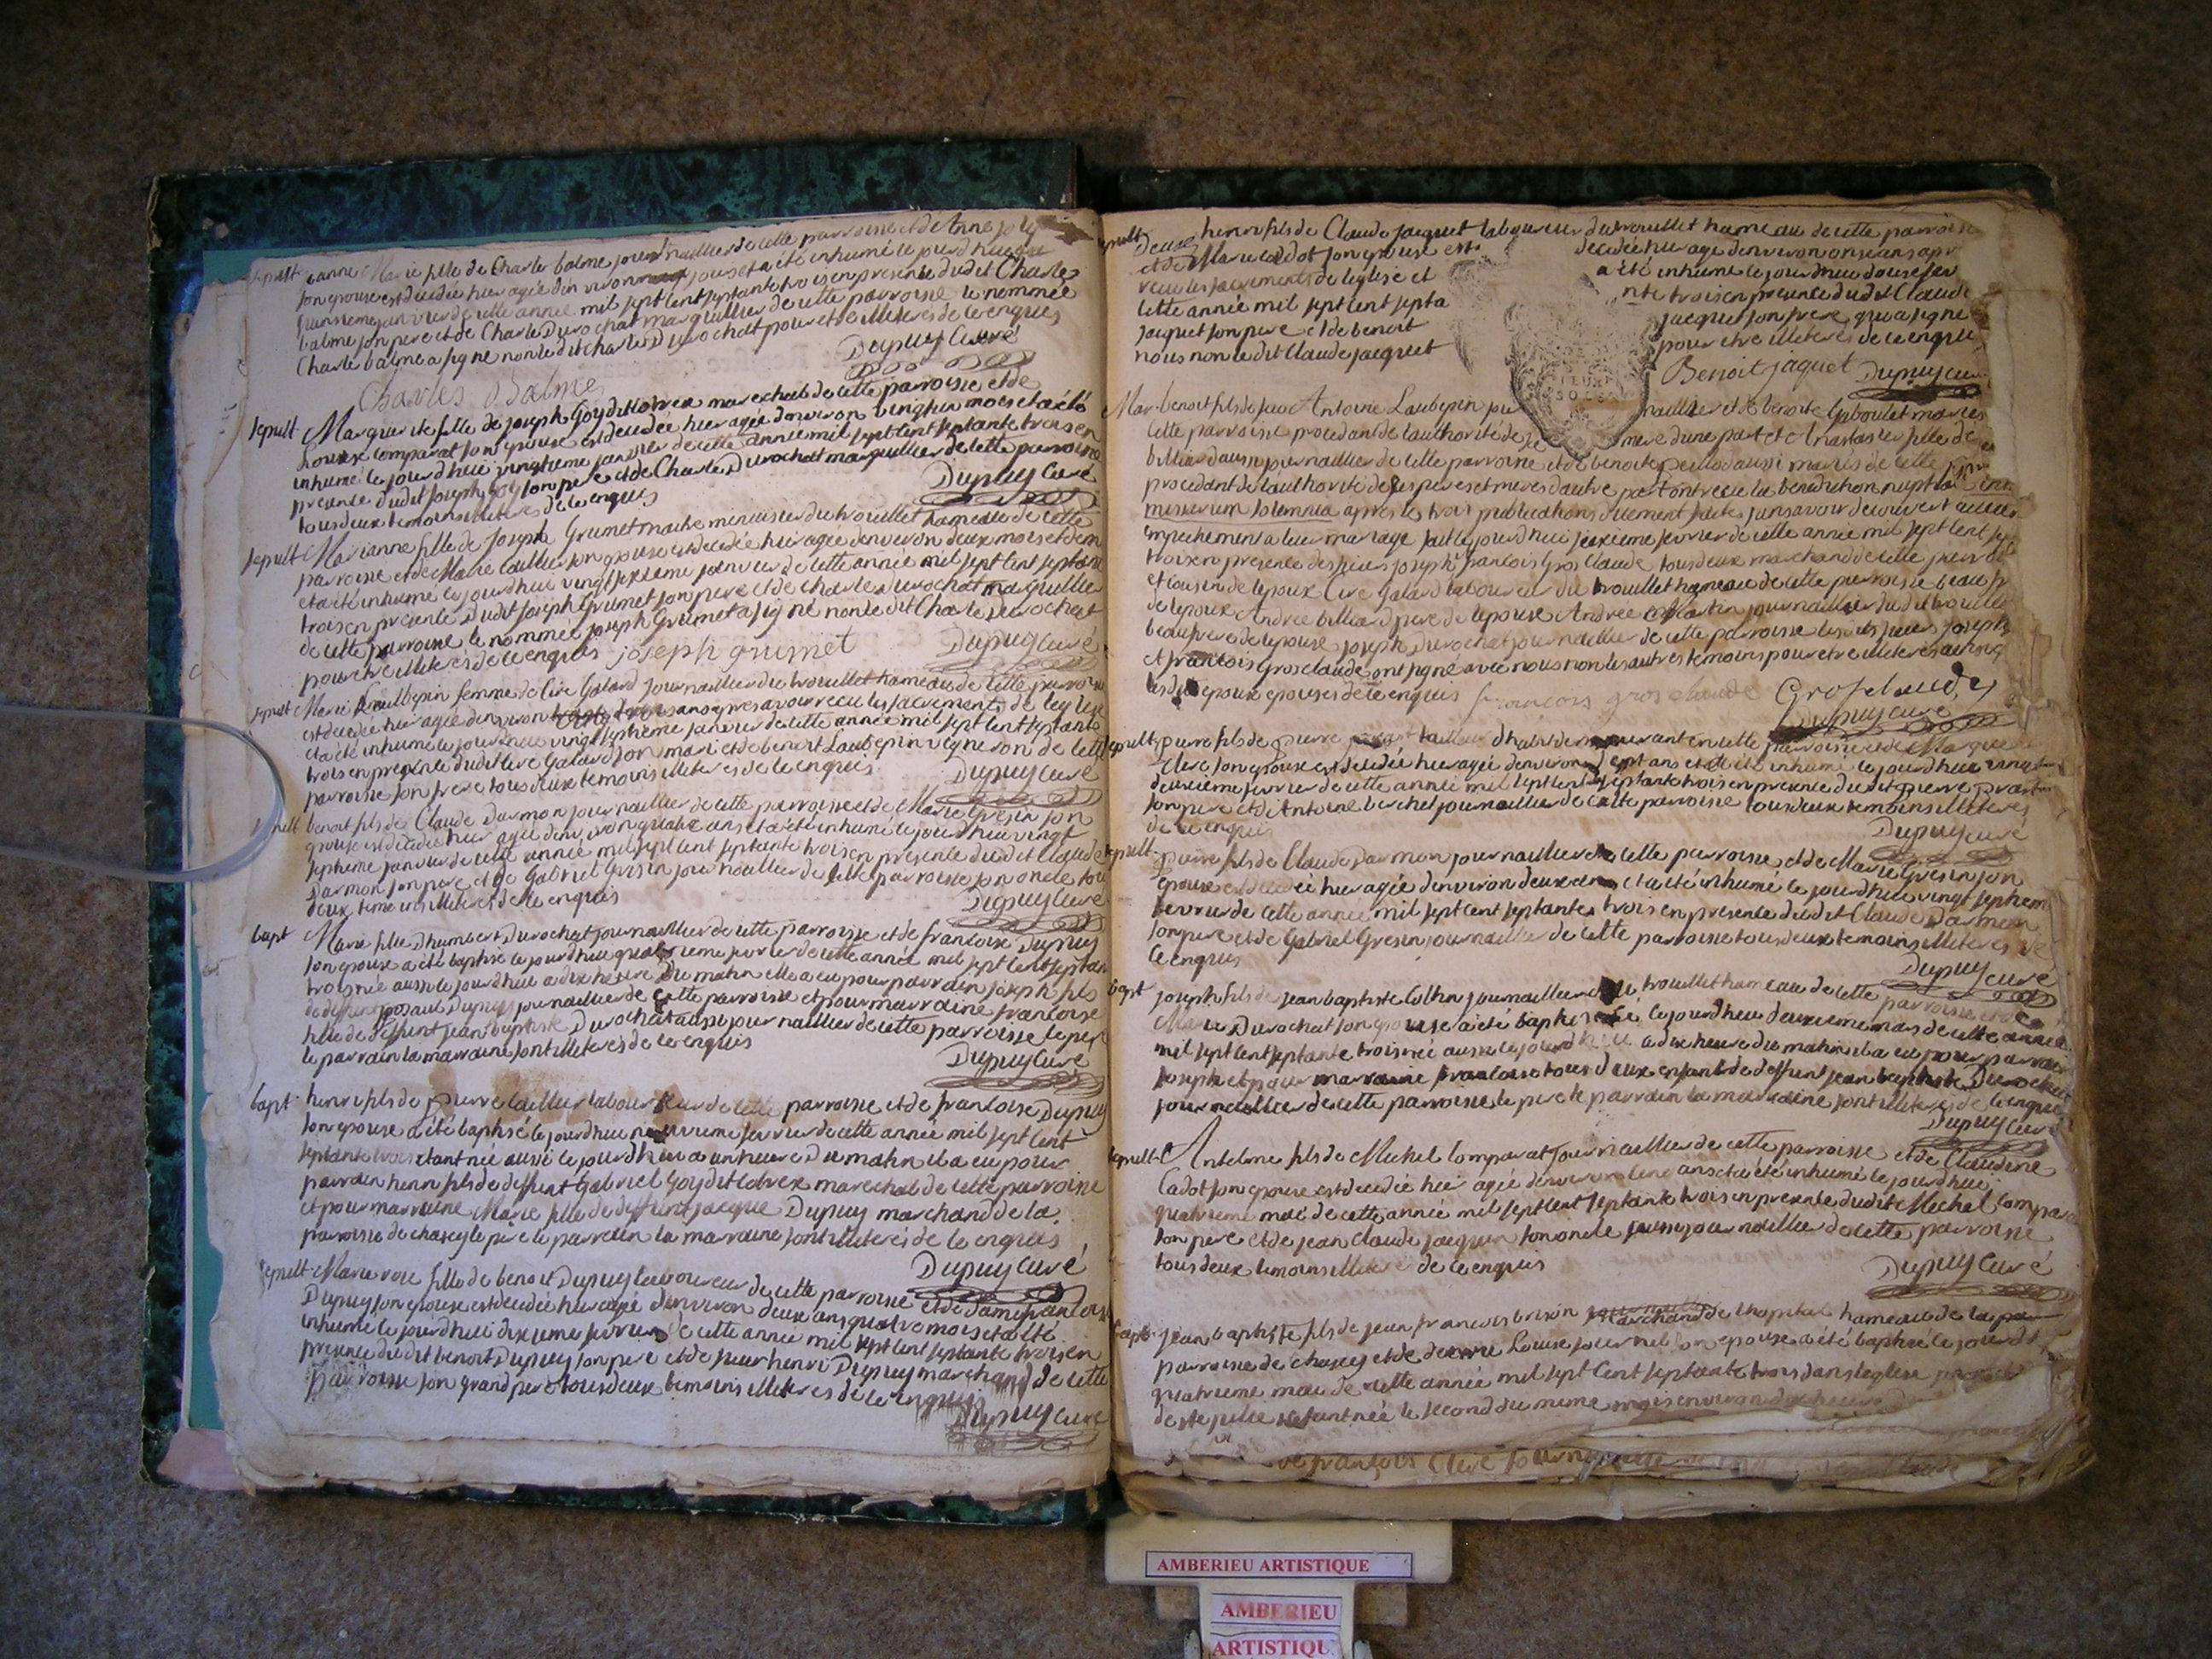 sepult jeanne Marie fille de Charle balme journaillier de cette parroisse et de Anne joly
son epouse est decedée hier agée d'environ jours et a été inhumé le jourdhuy
janvier de cette année mil sept cent septante trois en presence dudit Charle
balme son pere et de Charle Durochat marguillier de cette parroisse le nommée
Charle balme a signé non ledit Charle Durochat pour etre illiteres de ce enquis
Dupuy Curé
Charles Balme
sepult Marguerite fille de joseph Goy dit lovrex marechal de cette parroisse et de
Louise comparat son epouse est decedée hier agée d'environ vingt un mois et a été
inhumé le jourdhui vingtieme janvier de cette année mil sept cent septante trois en
presence dudit joseph Goy son pere et de Charle Durochat marguillier de cette parroisse
tous deux temoins illiteres de ce enquis
Dupuy Curé
sepult Marianne fille de Joseph Grumet maitre menuisier du trouillet hameau de cette
parroisse et de Marie Caillier son epouse est decedée hier agée denviron deux mois et dem
et a été inhumé le jourdhui vingt sixieme janvier de cette année mil sept cent septante
trois en presence dudit joseph Grumet son pere et de charle durochat marguillier
de cette parroisse le nommée joseph Grumet a signé non ledit Charle durochat
pour etre illiteres de ce enquis
joseph grumet
Dupuy Curé
sepult Marie Laubepin femme de Cire Galard journaillier du trouillet hameau de cette parroisse
est decedée hier agée d'environ ans apres avoir recu les sacrements de leglise
et a été inhumé le jourdhui vingt septieme janvier de cette année mil sept cent septante
trois en presence dudit Cire Galard son mari et de benoit Laubepin vigneron de cette
parroisse son frere tous deux temoins illiteres de ce enquis
Dupuy Curé
sepult benoit fils de Claude Darmon journaillier de cette parroisse et de Marie Gresin son
epouse est decedée hier agée denviron quatre ans et a été inhumé le jourdhui vingt
septieme janvier de cette année mil sept cent septante trois en presence dudit Claude
Darmon son pere et de Gabriel Gresin journaillier de cette parroisse son oncle tou
deux temoins illiteres de ce enquis
Dupuy Curé
bapt Marie fille Dhumbert Durochat journaillier de cette parroisse et de francoise Dupuy
son epouse a été baptisé le jourdhui quatrieme fevrier de cette année mil sept cent septan
trois née aussi le jourdhui a dix heure du matin elle a eu pour parrain joseph fils
de deffunt Dupuy journaillier de cette parroisse et pour marraine francoise
fille de deffunt jean baptiste Durochat aussi journaillier de cette parroisse le pere
le parrain la marraine sont illiteres de ce enquis
Dupuy Curé
bapt henri fils de pierre Caillier laboureur de cette parroisse et de francoise Dupuy
son epouse a été baptisé le jourdhui neuvieme fevrier de cette année mil sept cent
septante trois etant née aussi le jourdhui a un heure du matin il a eu pour
parrain henri fils de deffunt Gabriel Goy dit lovrex marechal de cette parroisse
et pour marraine Marie fille de deffunt jacque Dupuy marchand de la
parroisse de chasey le pere le parrain la marraine sont illiteres de ce enquis
Dupuy Curé
sepult Marie rose fille de benoit Dupuy laboureur de cette parroisse et de dame francoise
Dupuy son epouse est decedée hier agée denviron deux ans quatre mois et a été
inhumé le jourdhui dixieme fevrier de cette année mil sept cent septante trois en
presence dudit benoit Dupuy son pere et de sieur henri Dupuy marchand de cette
parroisse son grand pere tous deux temoins illiteres de ce enquis
Dupuy Curé
sepult henri fils de Claude jacquet laboureur du trouillet hameau de cette parroisse
et de Marie cadot son epouse est decedée hier age denviron onse ans apr
recu les sacrements de leglise et a été inhumé le jourdhui douse fev
cette année mil sept cent septa nte trois en presence dudit Claude
jacquet son pere et de benoit jacquet son frere qui a signé
nous non ledit Claude jacquet pour etre illiteres de ce enquis
Benoit jaquet Dupuy cure
Mar- benoit fils de feu Antoine Laubepin jou naillier et de benoite Gaboulet mariés
cette parroisse procedant de lauthorité de sa mere dune part et Anastasie fille de
billiard aussi journaillier de cette parroisse et de benoite aussi mariés de cette
procedant de lauthorité de ses peres et meres dautre part ont recu la benediction nuptial
missarum solemnia apres les trois publications duement faites sans avoir decouvert aucun
empechement a leur mariage fait le jourdhui seixieme fevrier de cette année mil sept cent sep
trois en presence des sieurs joseph francois Grosclaude tous deux marchand de cette parroi
et cousin de lepoux Cire Galard laboureur du trouillet hameau de cette parroisse beau f
de lepoux Andree billiard pere de lepouse Andree Martin journaillier du dit trouille
beau frere de lepouse joseph Durochat journaillier de cette parroisse lesdits sieurs joseph
et francois Grosclaude ont signé avec nous non les autres temoins pour etre illiteres
les epoux epouses de ce enquis
francois gros claude Grosclaude
Dupuy cure
sepult pierre fils de pierre tailleur dhabit demeurant en cette parroisse et de Marguer
Clere son epouse est decedée hier agée denviron sept ans et a été inhumé le jourdhui vingt
deuxieme fevrier de cette année mil sept cent septante trois en presence dudit pierre
son pere et de Antoine berchet journaillier de cette parroisse tous deux temoins illiteres
de ce enquis
Dupuy cure
sepult pierre fils de Claude Darmon journaillier de cette parroisse et de Marie Gresin son
epouse est decedée hier agée denviron deux ans et a été inhumé le jourdhui vingt septiem
fevrier de cette année mil sept cent septante trois en presence dudit Claude Darmon
son pere et de Gabriel Gresin journaillier de cette parroisse tous deux temoins illiteres de
ce enquis
Dupuy cure
bapt joseph fils de jean baptiste Collin journaillier du trouillet hameau de cette parroisse et de
Marie Durochat son epouse a été baptisé le jourdhui deuxieme mars de cette année
mil sept cent septante trois née aussi le jourdhui a dix heure du matin il a eu pour parrain
joseph et pour marraine francoise tous deux enfants de deffunt jean baptiste Durochat
journaillier de cette parroisse le pere le parrain la marraine sont illiteres de ce enquis
Dupuy curé
sepult Antelme fils de Michel Comparat journaillier de cette parroisse et de Claudine
Cadot son epouse est decedée hier agée denviron cinq ans et a été inhumé le jourdhui
quatrieme mai de cette année mil sept cent septante trois en presence dudit Michel Compara
son pere et de jean Claude jacquin son oncle aussi journaillier de cette parroisse
tous deux temoins illiteres de ce enquis
Dupuy Curé
bapt jean baptiste fils de jean francois brison marchand de lhopital hameau de la par
parroisse de chasey et de Louise son epouse a été baptisé le jourdh
quatrieme mai de cette année mil sept cent septante trois dans leglise
de ste julie etant née le second du meme mois environ dix heure
francois Clere
AMBERIEU ARTISTIQUE
AMBERIEU
ARTISTIQU